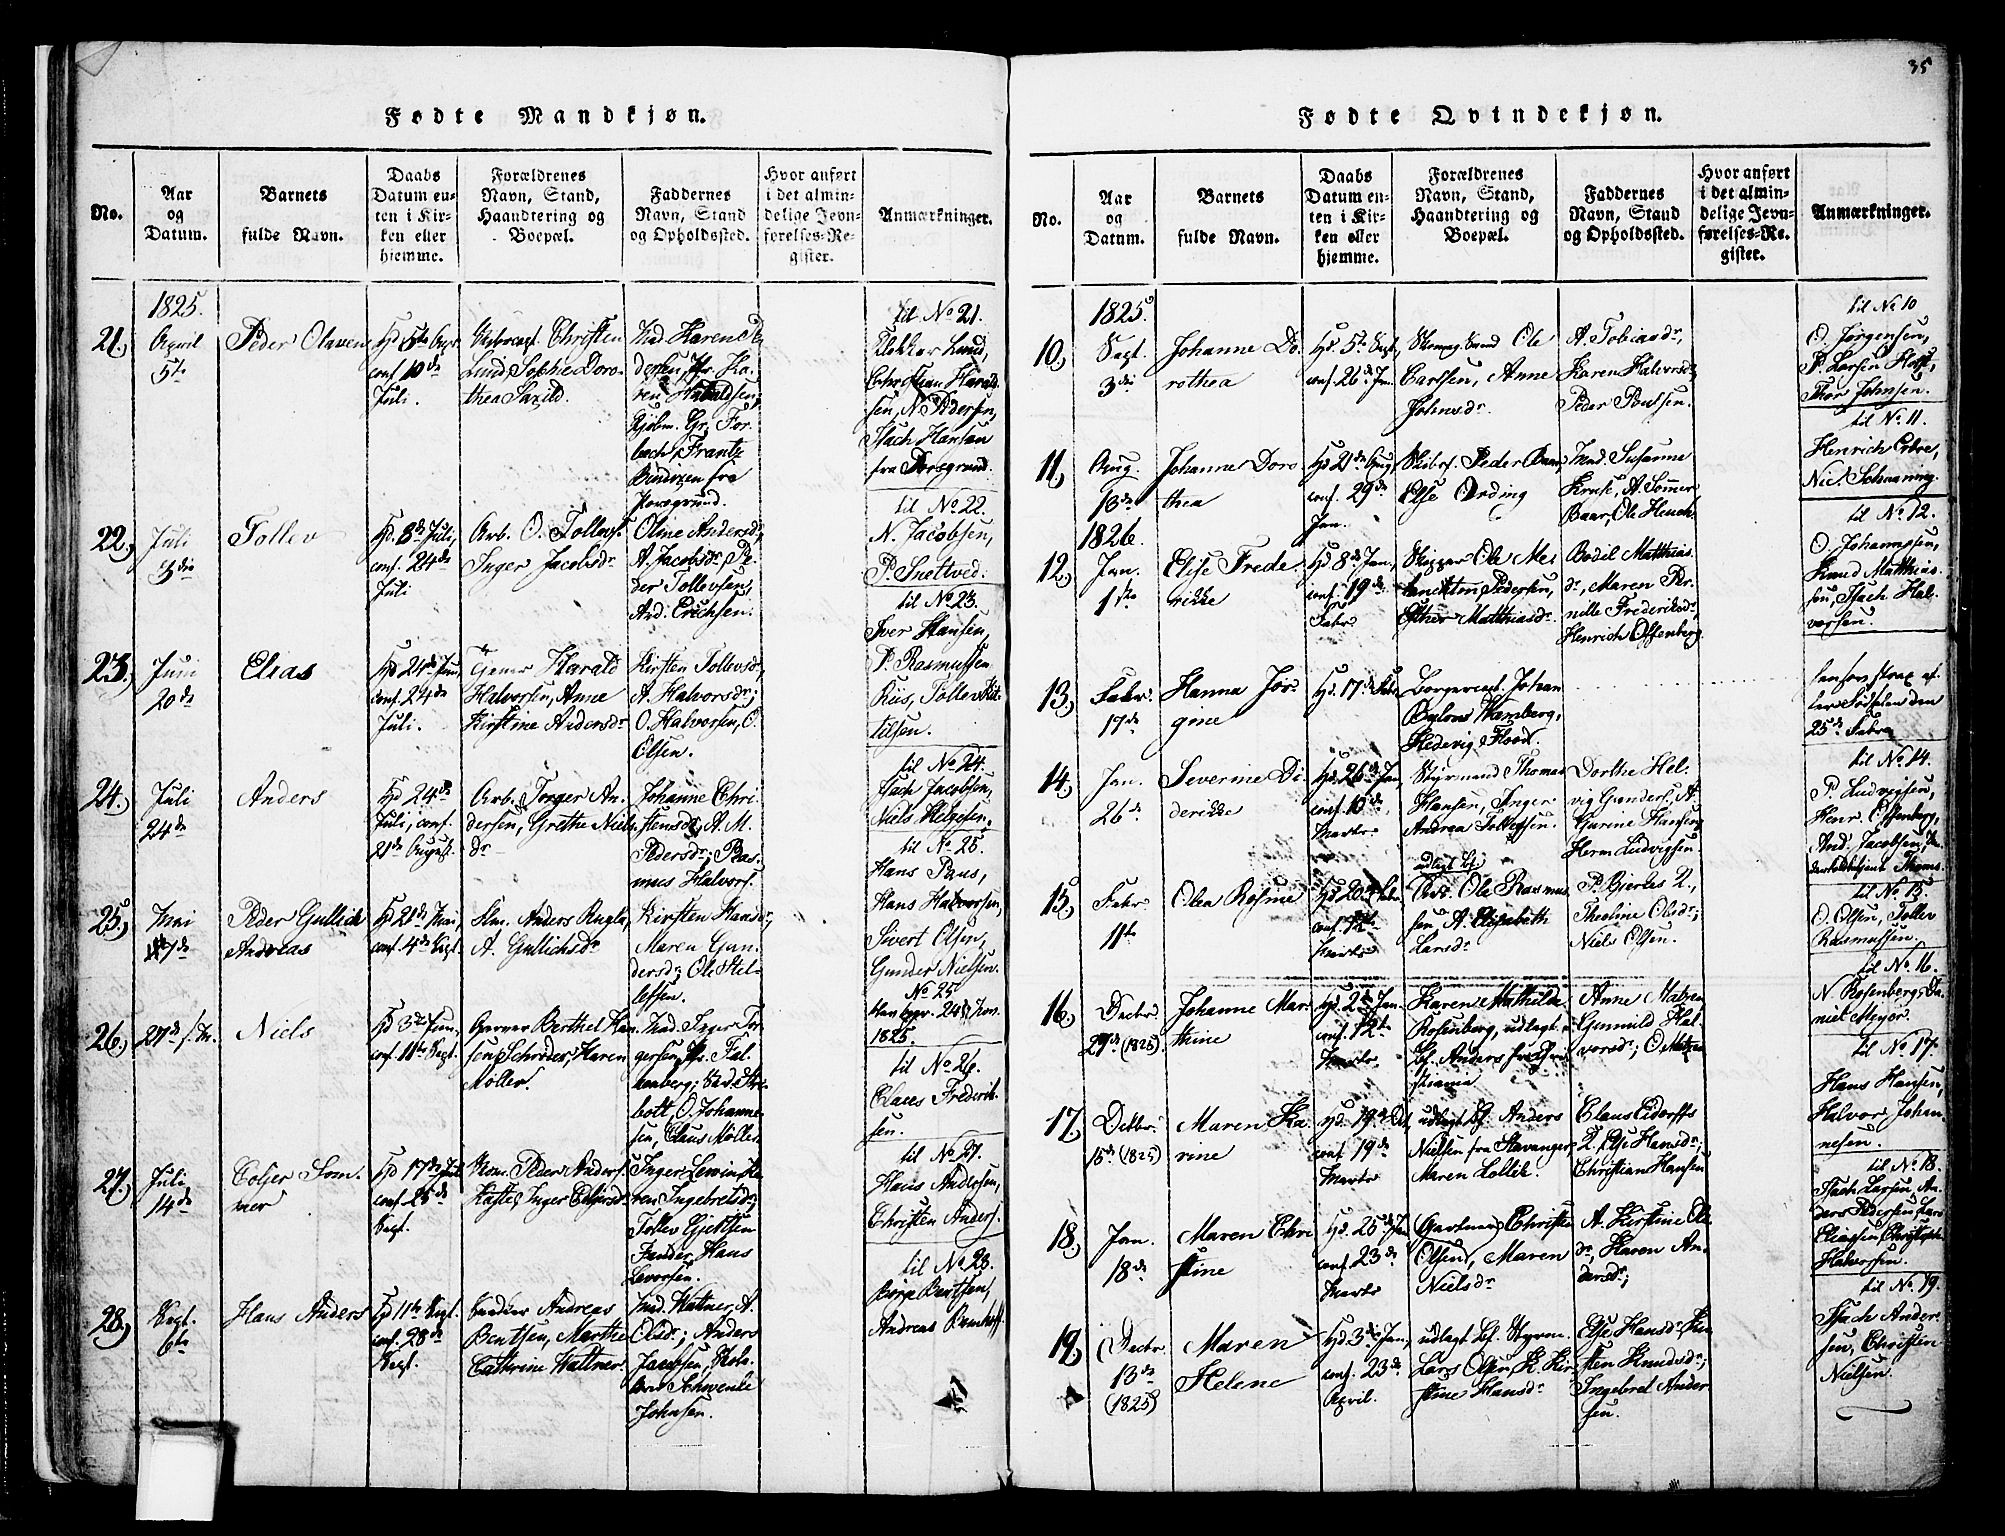 35
Fødte Mandkjøn.
No.
Aar
og
Datum.
Barnets
fulde Navn.
Daabs
Datum en-
ten i Kir-
ken eller
hjemme.
Forældrenes
Navn, Stand,
Haandtering og
Boepæl.
Faddernes
Navn, Stand
og Opholdssted.
Hvor anført
i det almin-
delige Jevn-
førelses-Re-
gister.
Anmærkninger.
1825.
21.)
April
5te
Peder Olaven
conf. 10de
Juli.
Christen
Lind, Sophie Doro-
thea Saxild.
Mad. Karen Pe-
dersen, Jfr. Ka-
ren
Kjøbm. Gr. For-
bach, Frantz
fra
Porsgrund.
til No 21.
Klokker Lund,
Christian Harald-
sen, N. Pedersen,
Isach Hansen
fra Porsgrund.
22.)
Juli
3die
Tollev
Hd. 8de Juli,
conf. 24de
Juli
Arb. O. Tollevs.
Inger Jacobsdr
Oline Andersdr,
A. Jacobsdr Pe-
der Tollevsen,
And. Erichsen.
til No 22.
N. Jacobsen,
P. Sneltved.
23.)
Juni
20de
Elias
Hd 24de Juni,
conf. 24de
Juli.
Harald
Halvorsen, Anne
Kirstine Andersdr
Kirsten Tollevsdr,
A. Halvorsdr;
O. Halvorsen, O.
Olsen.
til No 23.
Iver Hansen,
P. Rasmussen
Riis, Tollev Kit-
tilsen.
24.)
Juli
24de
Anders
Hd 24de
Juli, conf.
21de August.
Arb. Torger An-
dersen, Grethe Niels-
dr
Johanne Chri-
stensdr, A. M.
Pedersdr; Ras-
mus Halvors.
til No 24.
Isach Jacobsen,
Niels Helgesen.
25.)
Mai
17de
Peder Gullich
Andreas
Hd 21de Mai,
conf. 4de Sept.
Anders Rugla,
A. Gullichsdr
Kirsten Hansdr,
Maren Gun-
dersdr; Ole Stel-
lefsen.
til No 25.
Hans Paus,
Hans Halvorsen,
Sivert Olsen,
Gunder Nielsen.
No 25
1825.
26.)
27de
Niels
Hd 3die Juni,
conf. 11te Sept.
Garver Berthel Han-
sen Schrøder, Karen
Møller.
Mad. Inger Tor-
gersen, Jfr. Fal-
kenberg;
bott, O. Johanne-
sen, Claus Møller.
til No 26.
Claus Frederik-
sen.
27.)
Juli
14de
Som-
mer
Hd 17de Juli
conf. 25de
Sept.
Peder Anders.
Inger
Inger Lewin, Ka-
ren Ingebretsdr;
Tollev Gjertsen
Hans
Levorsen.
til No 27.
Hans Andersen,
Christen Anders.
28.)
Sept.
6te
Hans Anders
Hd 11te Sept.
conf. 28de
Sept.
Andreas
Bentsen, Marthe
Cathrine Wattner.
Mad. Wattner, A.
Olsdr; Anders
Jacobsen,
Schwenke
Johnsen.
til No 28.
Børje Bentsen,
Andreas
Fødte Qvindekjøn.
No.
Aar
og
Datum.
Barnets
fulde Navn.
Daabs
Datum en-
ten i Kir-
ken eller
hjemme.
Forældrenes
Navn, Stand,
Haandtering og
Boepæl.
Faddernes
Navn, Stand
og Opholdssted.
Hvor anført
i det almin-
delige Jevn-
førelses-Re-
gister.
Anmærkninger.
1825
10.)
Sept.
3die
Johanne Do-
rothea
Hd. 5te Sept.
conf. 26de Jan.
Ole
Carlsen, Anne
Johnsdr.
A. Tobiasdr,
Karen Halvorsdr;
Peder Poulsen.
til No 10
O. Jørgensen,
P. Larsen
Thor Johnsen.
11.)
Aug.
13de
Johanne Doro-
thea
Hd 21de Aug.
conf. 29de
Jan.
Peder Baar,
Else Ording
Mad. Susanne
Kruse, A. Sommer
Baar, Ole Heuch
til No 11.
Henrich
Nic. Schaaning.
1826.
12.)
Jan.
1ste
Elise Frede-
rikke
Hd 8de Jan,
conf. 19de
Febr.
Skipper Ole Me-
lanckton Pedersen,
Esther Matthiasdr.
Bodil Matthias-
dr, Maren Per-
nelle Frederiksdr,
Henrich Offenberg.
til No 12.
O. Johannesen,
Knud Matthias-
sen, Isach Hal-
vorsen.
13.)
Febr.
17de
Hanna Jør-
gine
Hd. 17de Febr
Johan
Wamberg,
Hedevig Flood.
strax ef-
ter Fødselen den
25de Febr
14.)
Jan.
26de
Severine Di-
derikke
Hd. 26de Jan,
conf. 10de
Marts
Styrmand Thomas
Hansen, Inger
Andrea Tollefsen.
Dorthe Hel-
vig Gunders. A.
Gurine Hansen,
Herm. Ludvigsen.
til No 14.
P. Ludvigsen,
Henr. Offenberg,
And. Jacobsen,
15.)
Febr.
11te
Olea Rosine
Hd. 20de Febr
conf. 12te
Marts
udlagt Bf.
Ole Rasmus-
sen, A. Elisabeth
Larsdr
P. Bjerkes Q.,
Theoline Olsdr;
Niels Olsen.
til No 15
O. Olsen, Tollev
Rasmussen.
16.)
Decbr.
27de (1825).
Johanne Mar-
thine
conf. 12te
Marts
Karen Mathilde
Rosenberg, udlagt
Bf. Anders fra Chri-
stiania
Anne Matzen
Gunnild Hal-
vorsdr; O. Matzen
til No 16.
N. Rosenberg, Da-
niel Meyer.
17.)
Decbr.
15de (1825)
Maren Ka-
rine
conf. 19de
Marts
udlagt Bf. Anders
Nielsen fra Stavanger,
Maren Lollik.
Claus Eidorffs
Q., Else Hansdr;
Christian Hansen
til No 17.
Hans Hansen,
Halvor Johan-
nesen.
18.)
Jan.
18de
Maren Chri-
stine
Hd. 25de Jan
conf. 23de
Marts
Gartner Christen
Olsen, Maren
Nielsdr
A. Kirstine Ols-
dr, Karen An-
dersdr;
til No 18.
Isach Larsen, An-
ders Pedersen, Lars
Eliasen, Christopher
Halvorsen.
19.)
Decbr
13de
(1825)
Maren
Helene
Hd. 3die Jan,
conf. 23de
April.
udlagt Bf. Styrm.
Lars Olsen, K. Kir-
stine Hansdr
Else Hansdr, Kir-
sten Knudsdr;
Ingebret Ander-
sen.
til No 19.
Isach Ander-
sen, Christen
Nielsen.